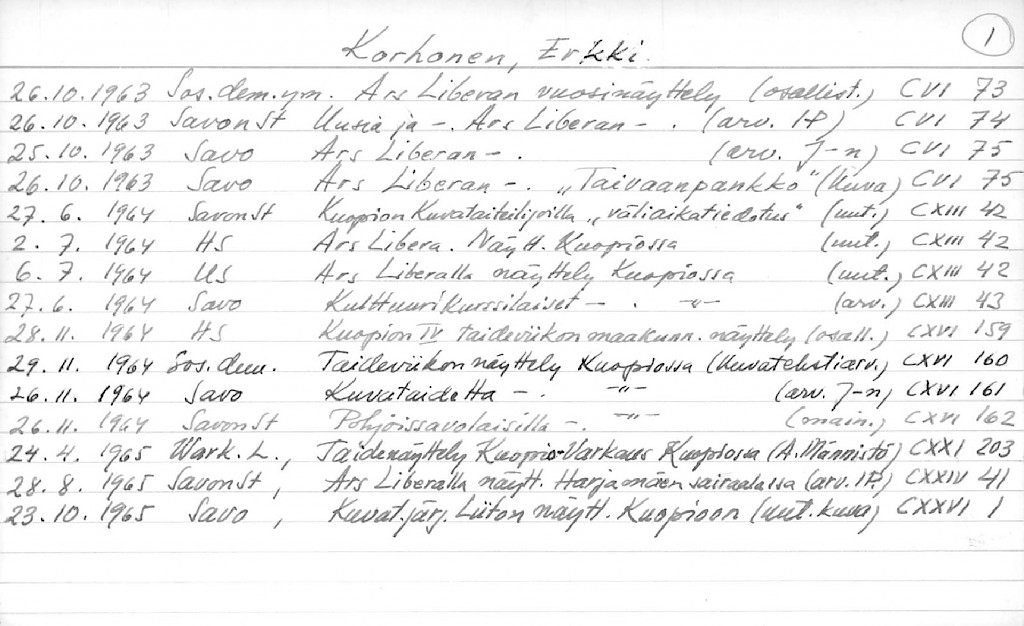 1
Korhonen, Erkki.
26.10.1963 Sos.dem.ym. Ars Liberan vuosinäyttely (osallist.) CVI 73
26.10.1963 SavonSt Uusia ja -. Ars Liberan - . (arv. IP) CVI 74
25.10.1963 Savo Ars Liberan - . (arv. J-n) CVI 75
26.10.1963 Savo Ars Liberan -. „Taivaanpankko" (Kuva) CVI 75
27. 6. 1964 SavonSt Kuopion Kuvataiteilijoilla „väliaikatiedotus" (uut.) CXIII 42
2. 7. 1964 HS Ars Libera. Näytt. Kuopiossa (uut.) CXIII 42
6. 7. 1964 US Ars Liberalla näyttely Kuopiossa (uut.) CXIII 42
27. 6. 1964 Savo Kulttuurikurssilaiset - . -"- (arv.) CXIII 43
28.11. 1964 HS Kuopion IV taideviikon maakunn. näyttely (osall.) CXVI 159
29. 11. 1964 Sos.dem. Taideviikon näyttely Kuopiossa (Kuvatekstiarv.) CXVI 160
26.11. 1964 Savo Kuvataidetta - . -"- (arv. J-n) CXVI 161
26.11. 1964 SavonSt Pohjoissavolaisilla -. -"- (main.) CXVI 162
24. 4. 1965 Wark. L., Taidenäyttely Kuopio-Varkaus Kuopiossa (A. Männistö) CXXI 203
28. 8. 1965 SavonSt, Ars Liberalla näytt. Harjamäen sairaalassa (arv. IP.) CXXIV 41
23. 10. 1965 Savo, Kuvat.järj. Liiton näytt. Kuopioon (uut. kuva) CXXVI 1